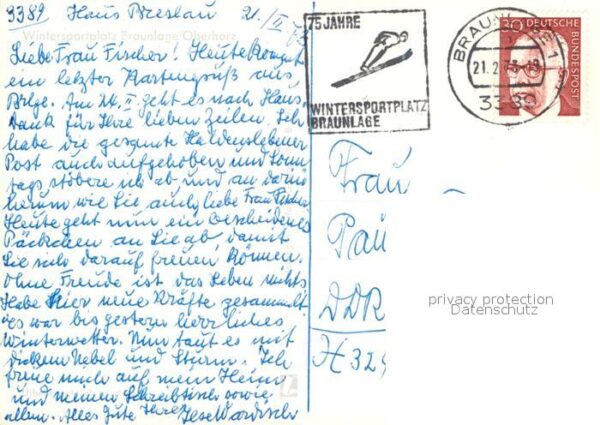 3389 Haus Breslau 21./II. 73
Wintersportplatz Braunlage/Oberharz
Liebe Frau Fischer! Heute kommt
ein letzter Kartengruß aus
Brlge. Am 24. II. geht es nach Haus.
Dank für Ihre lieben Zeilen. Ich
habe die gesamte Haldenslebener
Post auch aufgehoben und Sonn
tags stöbere ich ab und an darin
herum wie Sie auch, liebe Frau Fischer
Heute geht nun ein bescheidenes
Päckchen an Sie ab, damit
Sie sich darauf freuen können.
Ohne Freude ist das Leben nichts
Habe hier neue Kräfte gesammelt
es war bis gestern herrliches
Winterwetter. Nun taut es mit
dickem Nebel und Sturm. Ich
freue mich auf mein Heim
und meinen Schreibtisch sowie
allem. Alles Gute Ihre
75 JAHRE
WINTERSPORTPLATZ
BRAUNLAGE
BRAUNLAGE 1
21.2.73-18
3389
30 DEUTSCHE
BUNDESPOST
Frau
Pau
DDR
H 324
privacy protection
Datenschutz